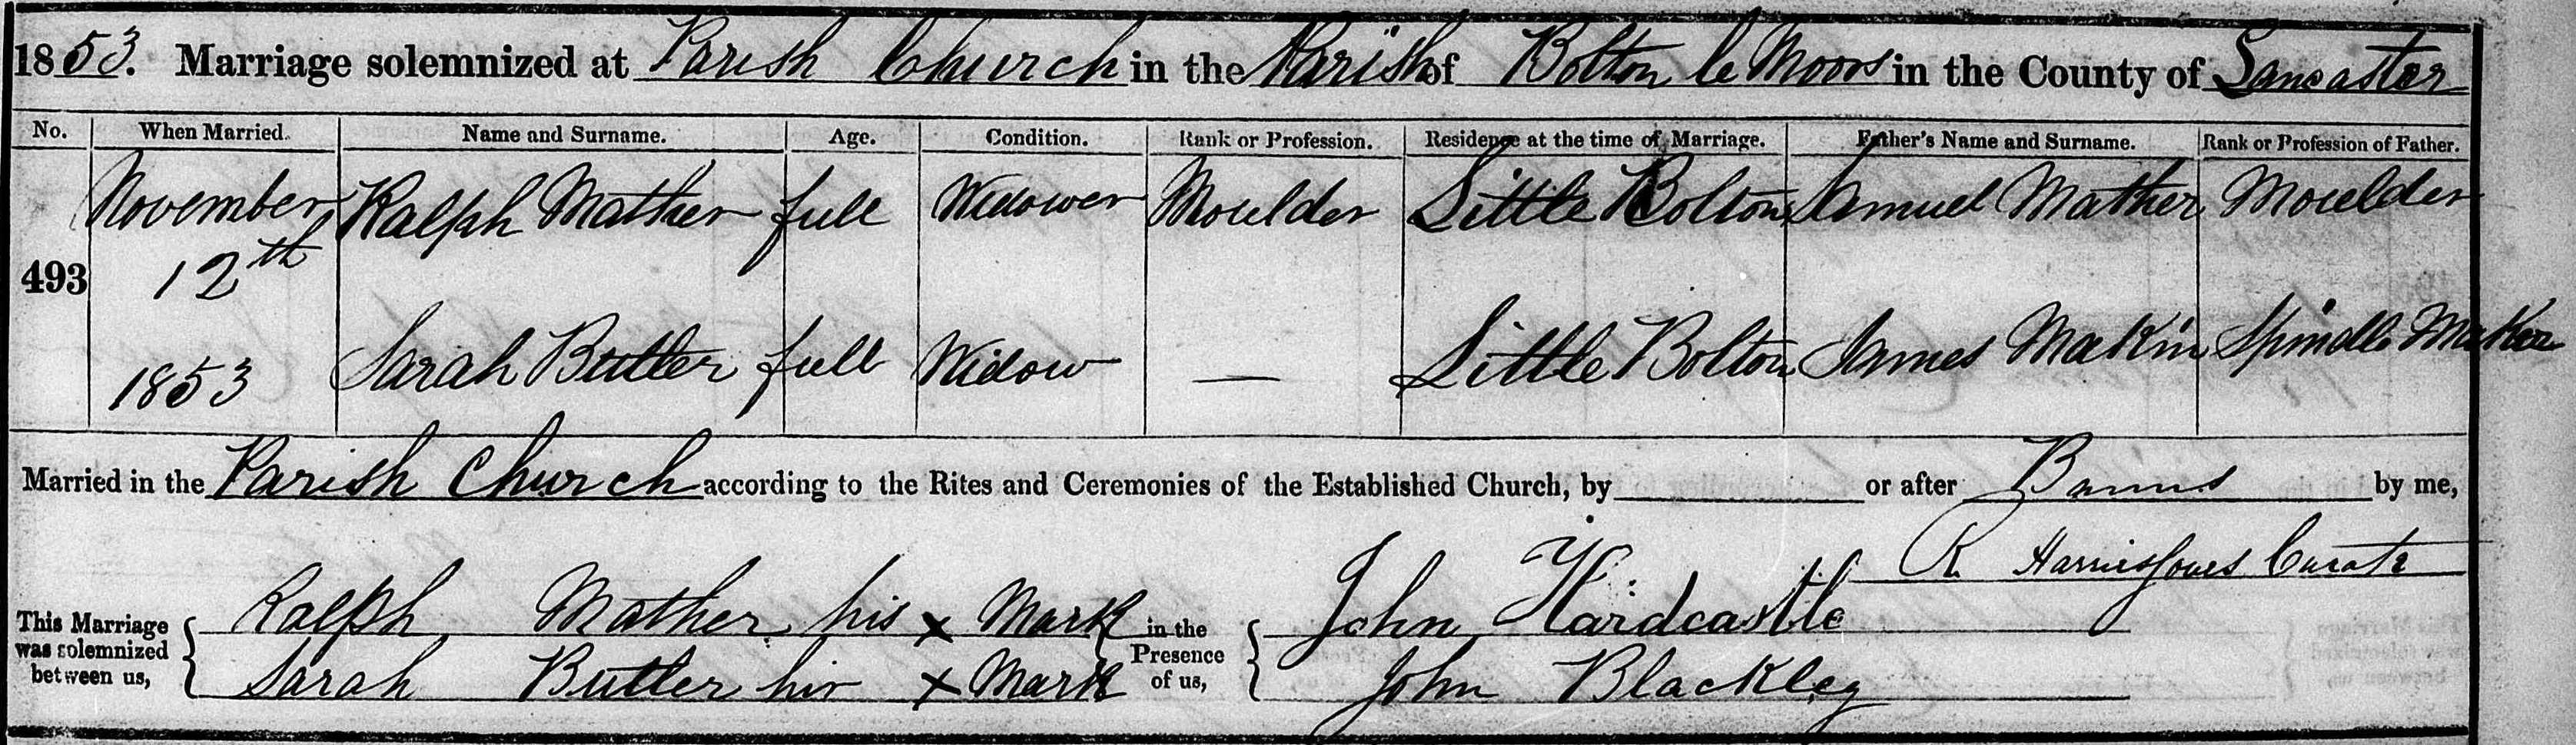 1853. Marriage solemnized at Parish Church in the Parish of Bolton le Moors in the County of Lancaster
No. When Married. Name and Surname. Age. Condition. Rank or Profession. Residence at the time of Marriage. Father's Name and Surname. Rank or Profession of Father.
November Ralph Mather full Widower Moulder Little Bolton Samuel Mather Moulder
493 12th
1853 Sarah Butler full Widow — Little Bolton James Makin Spindle Maker
Married in the Parish Church according to the Rites and Ceremonies of the Established Church, by or after Banns by me,
R Harris Jones Curate
This Marriage was solemnized between us, Ralph Mather his x Mark in the Presence of us, John Hardcastle
Sarah Butler her x Mark John Blackley